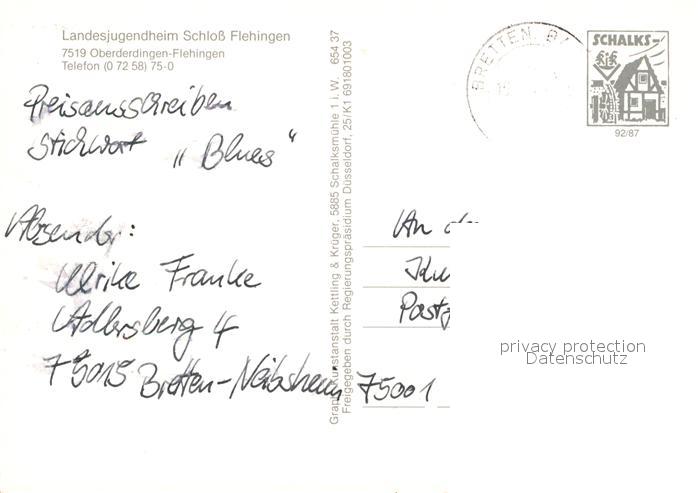 Landesjugendheim Schloß Flehingen
7519 Oberderdingen-Flehingen
Telefon (0 72 58) 75-0
Preisausschreiben
Stichwort „Blues“
Absender:
Ulrike Franke
Adlersberg 4
75015 Bretten-Neibsheim
Graph. Kunstanstalt Kettling & Krüger, 5885 Schalksmühle 1 i. W. 654 37
Freigegeben durch Regierungspräsidium Düsseldorf, 25/K1 691801003
BRETTEN, B
SCHALKS-
92/87
An d
Ku
Postg
75001
privacy protection
Datenschutz